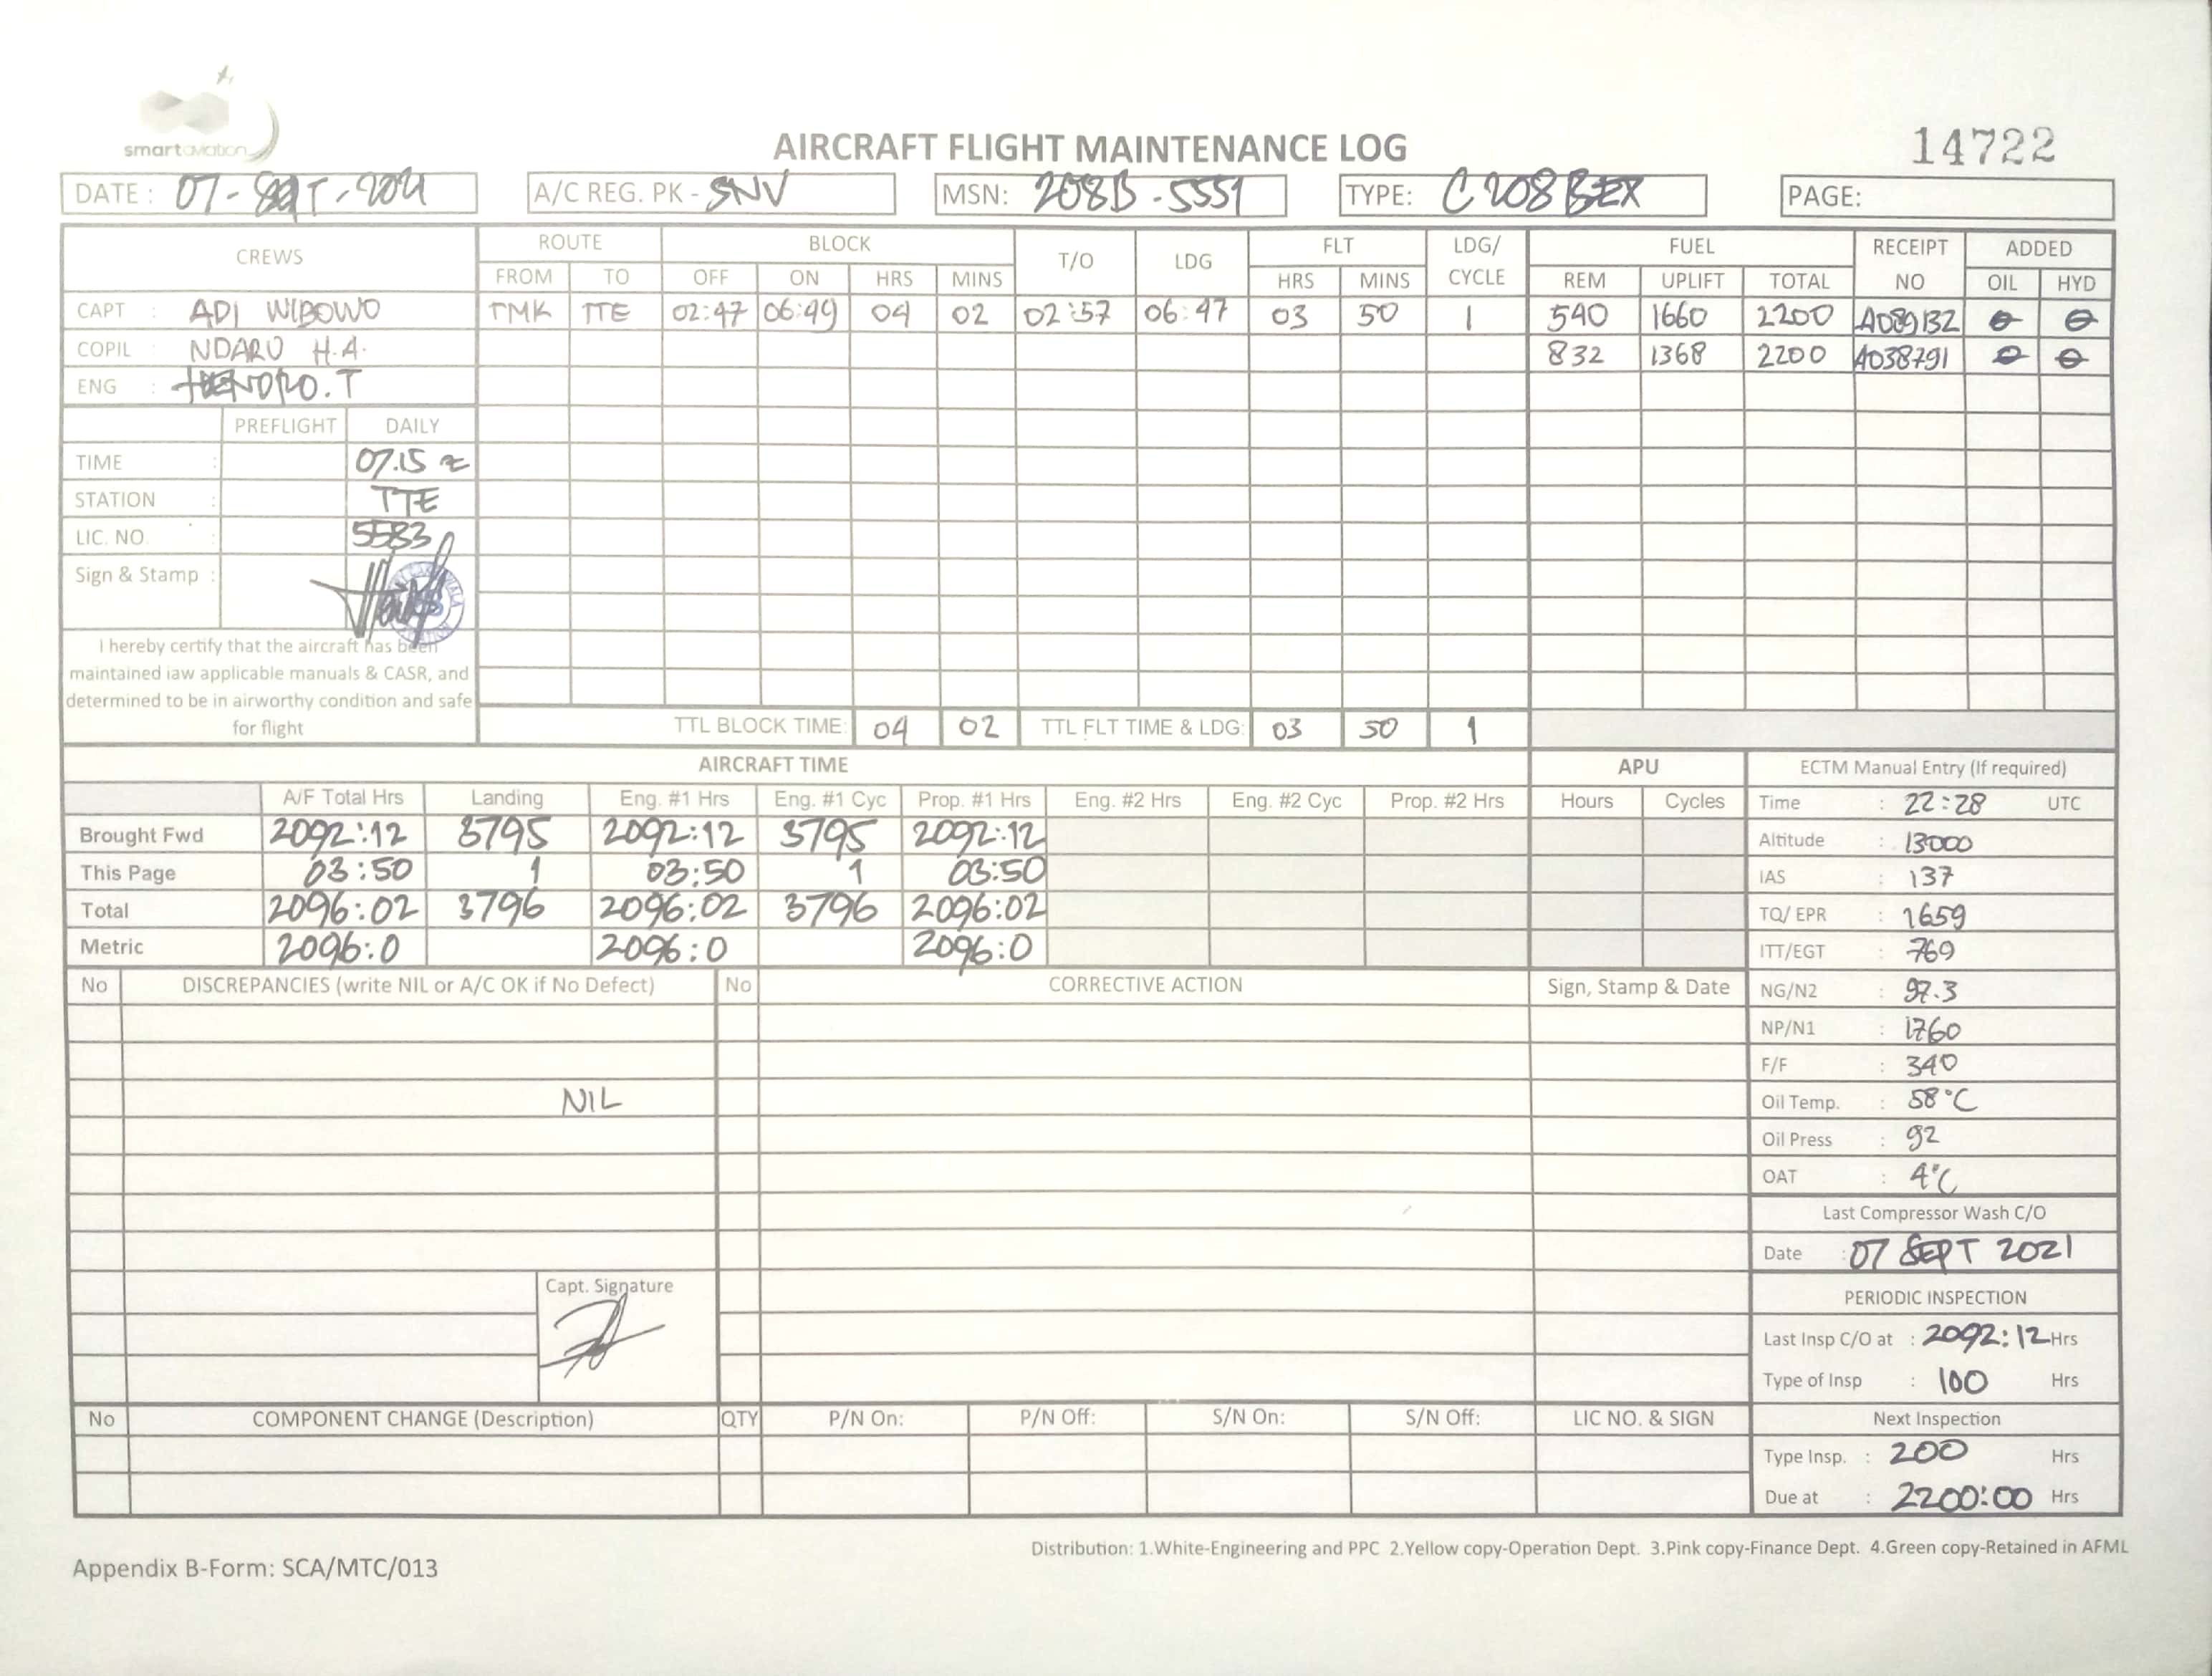 smartaviation
AIRCRAFT FLIGHT MAINTENANCE LOG
14722
DATE : 07-SEPT-2021
A/C REG. PK - SNV
MSN: 208B-5551
TYPE: C208BEX
PAGE:
CREWS ROUTE BLOCK T/O LDG FLT LDG/ CYCLE FUEL RECEIPT NO ADDED
FROM TO OFF ON HRS MINS HRS MINS REM UPLIFT TOTAL OIL HYD
CAPT : ADI WIBOWO TMK TTE 02:47 06:49 04 02 02:57 06:47 03 50 1 540 1660 2200 A089132 0 0
COPIL : NDARU H.A. 832 1368 2200 A038791 0 0
ENG : HENDRO.T
PREFLIGHT DAILY
TIME : 07.15 z
STATION : TTE
LIC. NO. : 5583
Sign & Stamp :
I hereby certify that the aircraft has been
maintained iaw applicable manuals & CASR, and
determined to be in airworthy condition and safe
for flight
TTL BLOCK TIME: 04 02 TTL FLT TIME & LDG: 03 50 1
AIRCRAFT TIME APU ECTM Manual Entry (If required)
A/F Total Hrs Landing Eng. #1 Hrs Eng. #1 Cyc Prop. #1 Hrs Eng. #2 Hrs Eng. #2 Cyc Prop. #2 Hrs Hours Cycles
Brought Fwd 2092:12 3795 2092:12 3795 2092:12
This Page 03:50 1 03:50 1 03:50
Total 2096:02 3796 2096:02 3796 2096:02
Metric 2096:0 2096:0 2096:0
Time : 22:28 UTC
Altitude : 13000
IAS : 137
TQ/ EPR : 1659
ITT/EGT : 769
NG/N2 : 97.3
NP/N1 : 1760
F/F : 340
Oil Temp. : 58°C
Oil Press : 92
OAT : 4°C
Last Compressor Wash C/O
Date : 07 SEPT 2021
PERIODIC INSPECTION
Last Insp C/O at : 2092:12 Hrs
Type of Insp : 100 Hrs
Next Inspection
Type Insp. : 200 Hrs
Due at : 2200:00 Hrs
No DISCREPANCIES (write NIL or A/C OK if No Defect) No CORRECTIVE ACTION Sign, Stamp & Date
NIL
Capt. Signature
No COMPONENT CHANGE (Description) QTY P/N On: P/N Off: S/N On: S/N Off: LIC NO. & SIGN
Distribution: 1.White-Engineering and PPC 2.Yellow copy-Operation Dept. 3.Pink copy-Finance Dept. 4.Green copy-Retained in AFML
Appendix B-Form: SCA/MTC/013